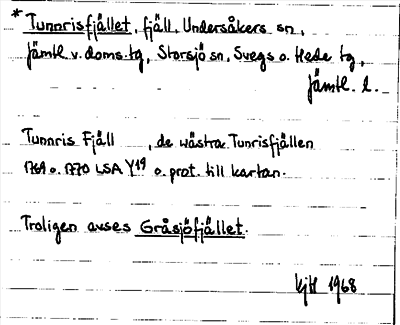 * Tunnrisfjället, fjäll, Undersåkers sn,
Jämtl. v. doms. tg, Storsjö sn, Svegs o. Hede tg,
Jämtl. l.
Tunnris Fjäll , de wästra Tunrisfjällen
1769 o. 1770 LSA Y19 o. prot. till kartan.
Troligen avses Gråsjöfjället.
KjH 1968